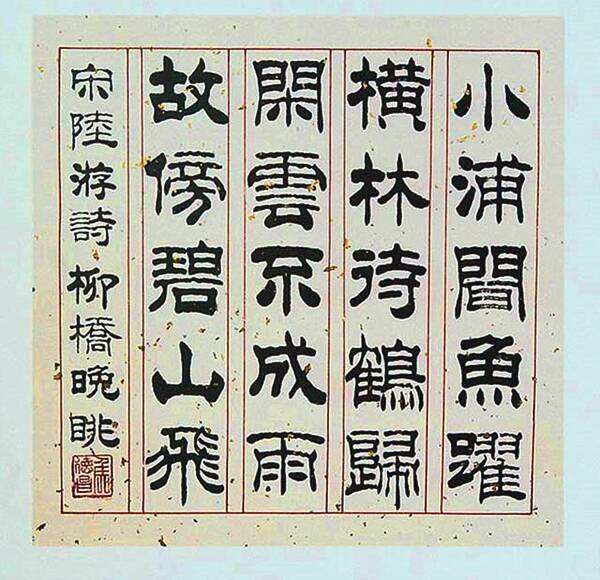 小浦聞魚躍
橫林待鶴歸
閑雲不成雨
故傍碧山飛
宋陸游詩 柳橋晚眺